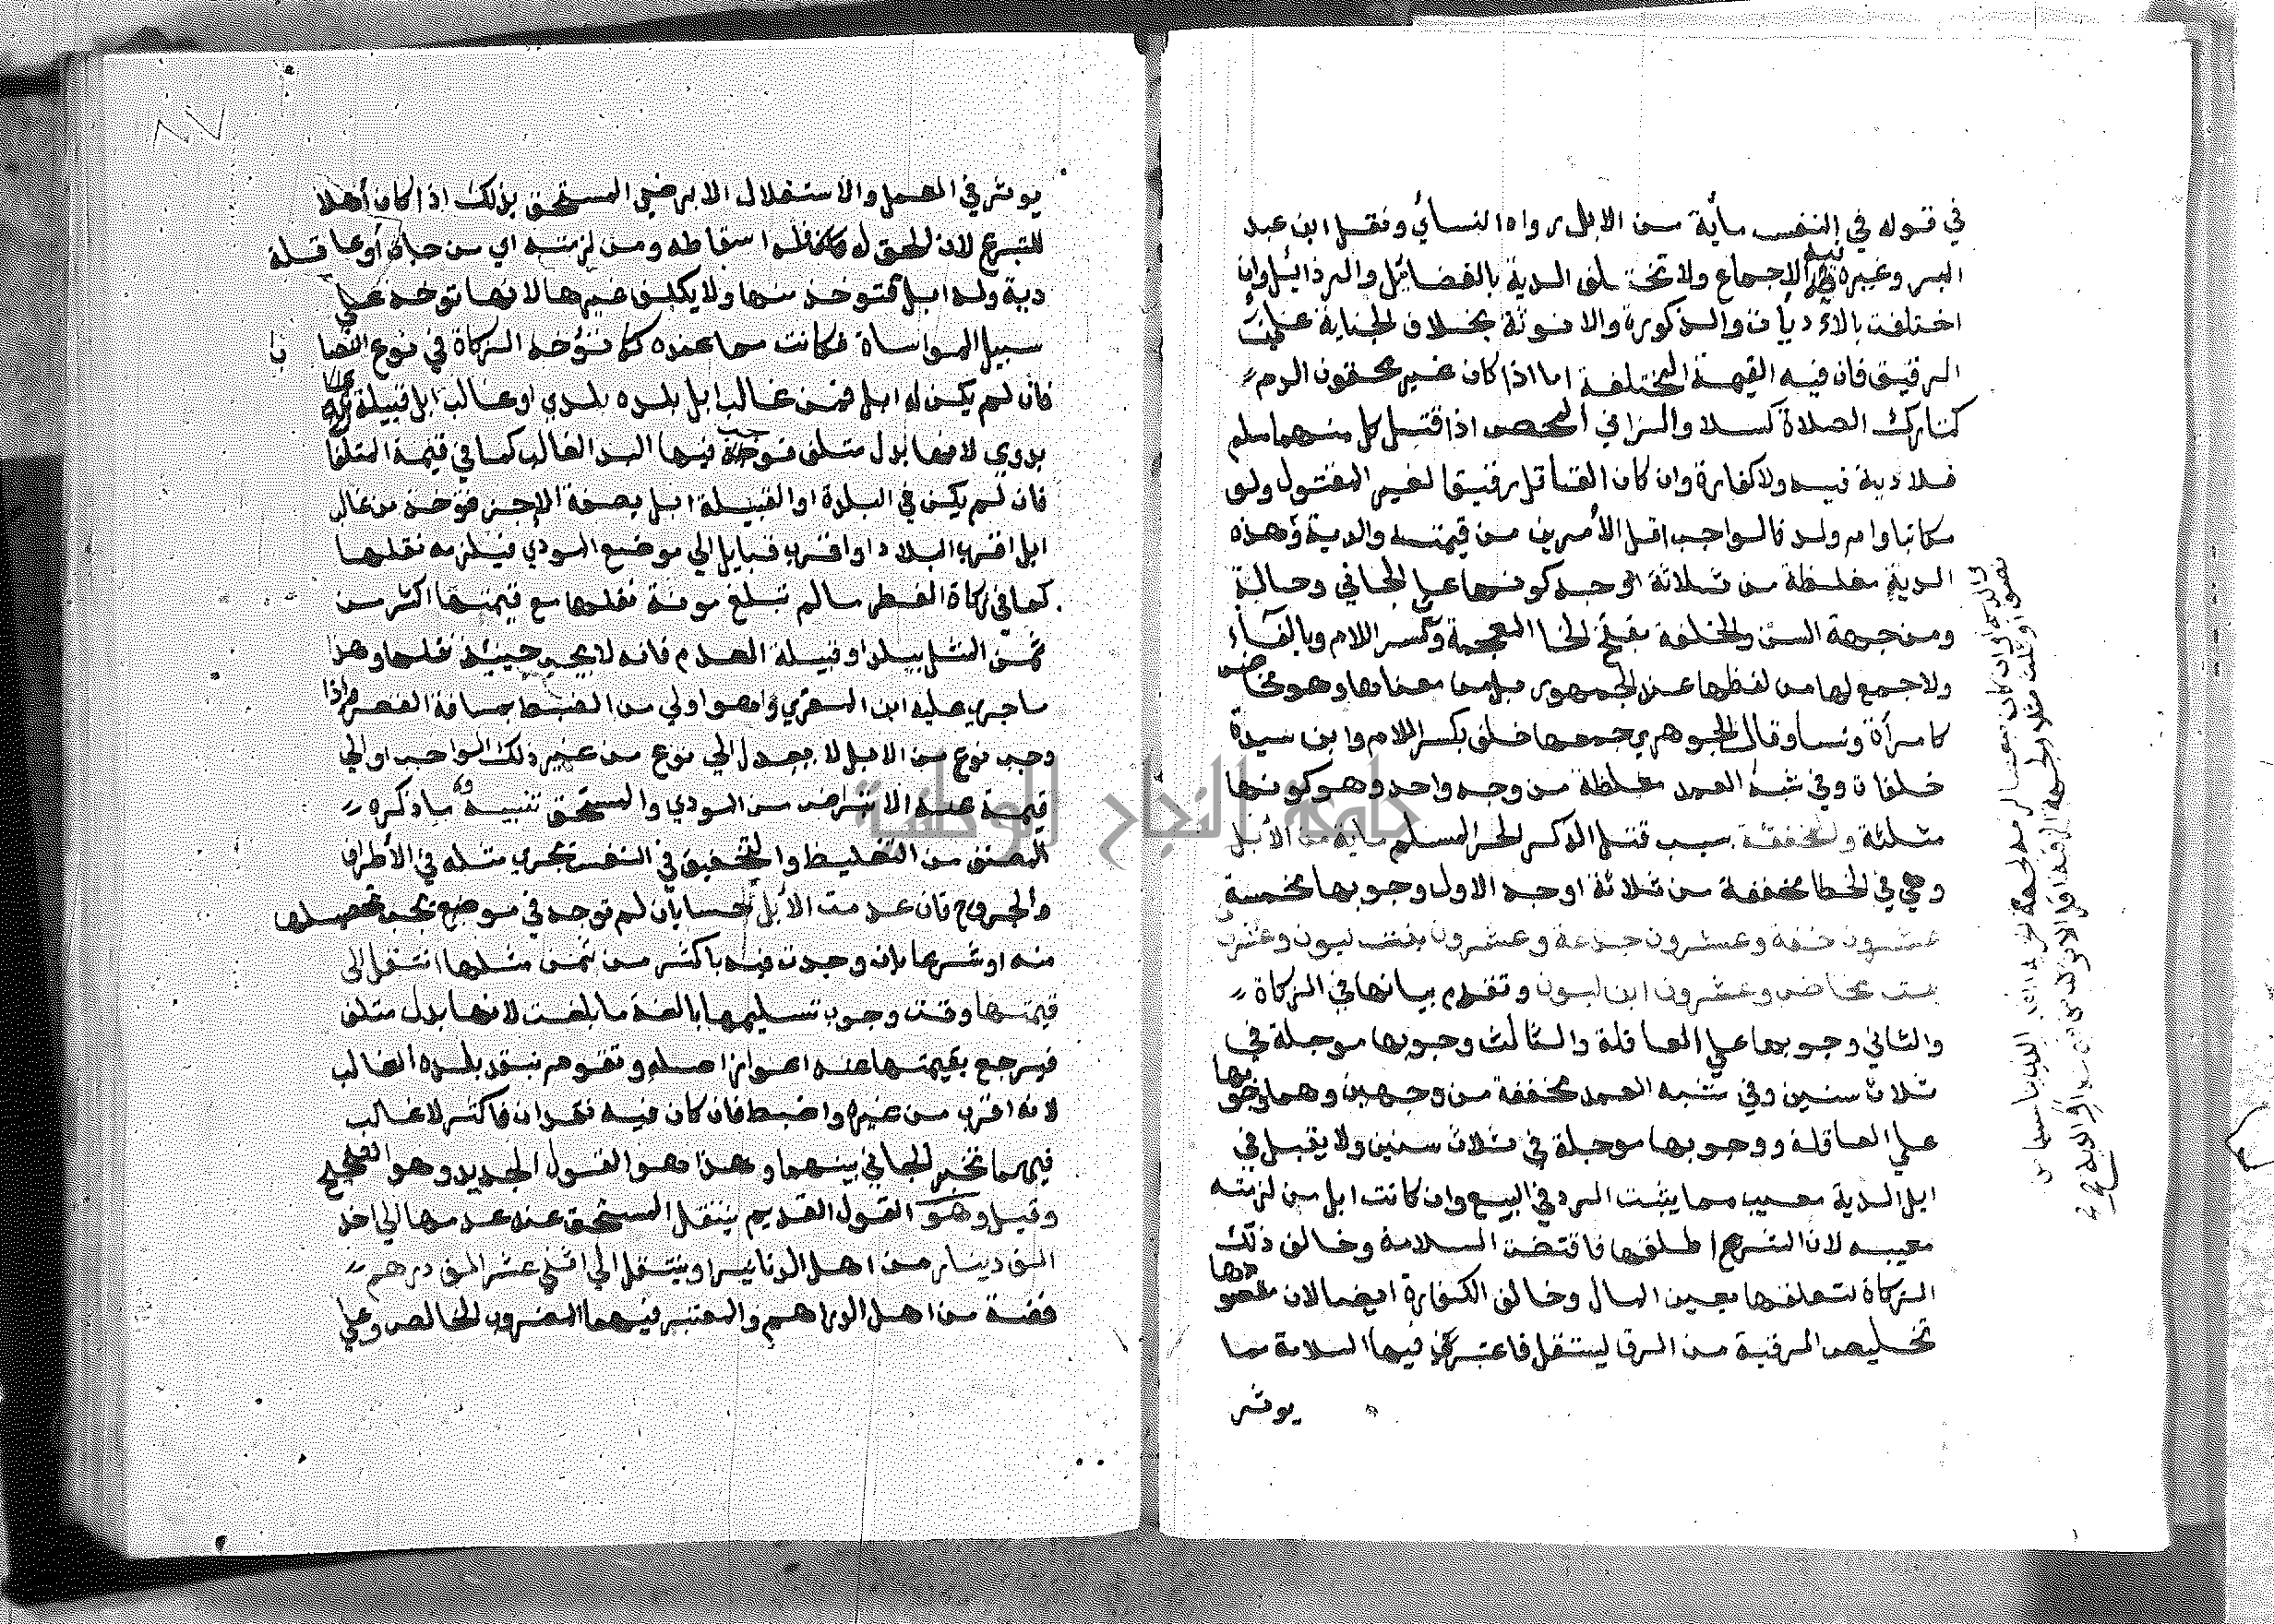 في قوله في النفس مأية من الابل رواه النسائي ونقل ابن عبد
البر وغيره فيه الاجماع ولا تختلف الدية بالفضائل والرذائل وان
اختلفت بالاديان والذكورة والانوثة بخلاف الجناية على
الرقيق فان فيه القيمة المختلفة اما اذا كان غير محقون الدم
كتارك الصلاة كسلا والزاني المحصن اذا قتل كل منهما مسلم
فلا دية فيه ولا كفارة وان كان القاتل رقيقا لغير المقتول ولو
مكاتبا وام ولد فالواجب اقل الأمرين من قيمته والدية وهذه
الدية مغلظة من ثلاثة اوجه كونها على الجاني وحالة
ومن جهة السن والخلفة بفتح الخا المعجمة وكسر اللام وبالفاء
ولا جمع لها من لفظها عند الجمهور بل من معناها وهو مخاض
كامرأة ونسا وقال الجوهري جمعها خلف بكسر اللام وابن سيدة
خلفات وفي شبه العمد مغلظة من وجه واحد وهو كونها
مثلثة والمخففة بسبب قتل الذكر الحر المسلم ماية من الأبل
وهي في الخطا مخففة من ثلاثة اوجه الاول وجوبها مخمسة
عشرون حقة وعشرون جذعة وعشرون بنت لبون وعشرون
بنت مخاض وعشرون ابن لبون وتقدم بيانها في الزكاة
والثاني وجوبها على العاقلة والثالث وجوبها موجلة في
ثلاث سنين وفي شبه العمد مخففة من وجهين وهما وجوبها
علي العاقلة ووجوبها موجلة في ثلاث سنين ولا يقبل في
ابل الدية معيب مما يثبت الرد في البيع وان كانت ابل من لزمته
معيبه لان الشرع اطلقها فاقتضت السلامة وخالف ذلك
الزكاة لتعلقها بعين المال وخالف الكفارة ايضا لان مقصودها
تخليص الرقبة من الرق ليستقل فاعتبر فيها السلامة مما
يوثر
يوثر في العمل والاستقلال الا برضي المستحق بذلك اذا كان أهلا
للتبرع لان الحق له فله اسقاطه ومن لزمته اي من جان أو عاقلة
دية وله ابل فتوخذ منها ولا يكلف غيرها لانها توخذ على
سبيل المواساة فكانت مما عنده كما تؤخذ الزكاة في نوع النصاب
فان لم يكن له ابل فمن غالب ابل بلده بلدي او غالب ابل قبيلة
بدوي لانها بدل متلف فوجب فيها البدل الغالب كما في قيمة المتلف
فان لم يكن في البلدة او القبيلة ابل بصفة الإجزا فتوخذ من غالب
ابل اقرب البلاد او اقرب قبايل الي موضع المودي فيلزمه نقلها
كما في زكاة الفطر ما لم تبلغ مونة نقلها مع قيمتها اكثر من
ثمن المثل ببلد او قبيلة العدم فانه لا يجب حينئذ نقلها وهذا
ما جري عليه ابن المقري وهو اولي من الضبط بمسافة القصر واذا
وجب نوع من الابل لا يعدل الي نوع من غير ذلك الواجب او الي
قيمة عنه الا بتراض من المودي والمستحق تنبيه ما ذكره
المصنف من التغليظ والتخفيف في النفس يجري مثله في الأطراف
والجروح فان عدمت الأبل حسا بأن لم توجد في موضع يجب تحصيلها
منه او شرعا بان وجدت فيه باكثر من ثمن مثلها انتقل الى
قيمتها وقت وجوب تسليمها بالغة ما بلغت لانها بدل متلف
فيرجع بقيمتها عند اعواز اصله وتقوم بنقد بلده الغالب
لانه اقرب من غيره واضبط فان كان فيه نقدان فاكثر لا غالب
فيهما تخير الجاني بينهما وهذا هو القول الجديد وهو الصحيح
وقيل وهو القول القديم ينتقل المستحق عنه عدمها الي اخذ
الف دينار من اهل الدنانير او ينتقل الي اثني عشر الف درهم
فضة من اهل الدراهم والمعتبر فيهما المضروب الخالص وعلى
جامعة النجاح الوطنية